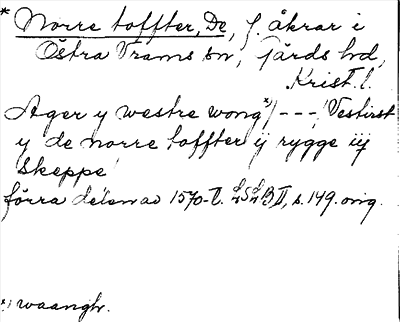 * Norre toffter, De, f. åkrar i
Östra Vrams sn, Gärds hd,
Krist. l.
Ager y westre wong*) --- Vesterst
y de norre toffter ij rygge iij
Skeppe
förra delen av 1570-t. LSLB II, s. 149. orig.
*) waangh.